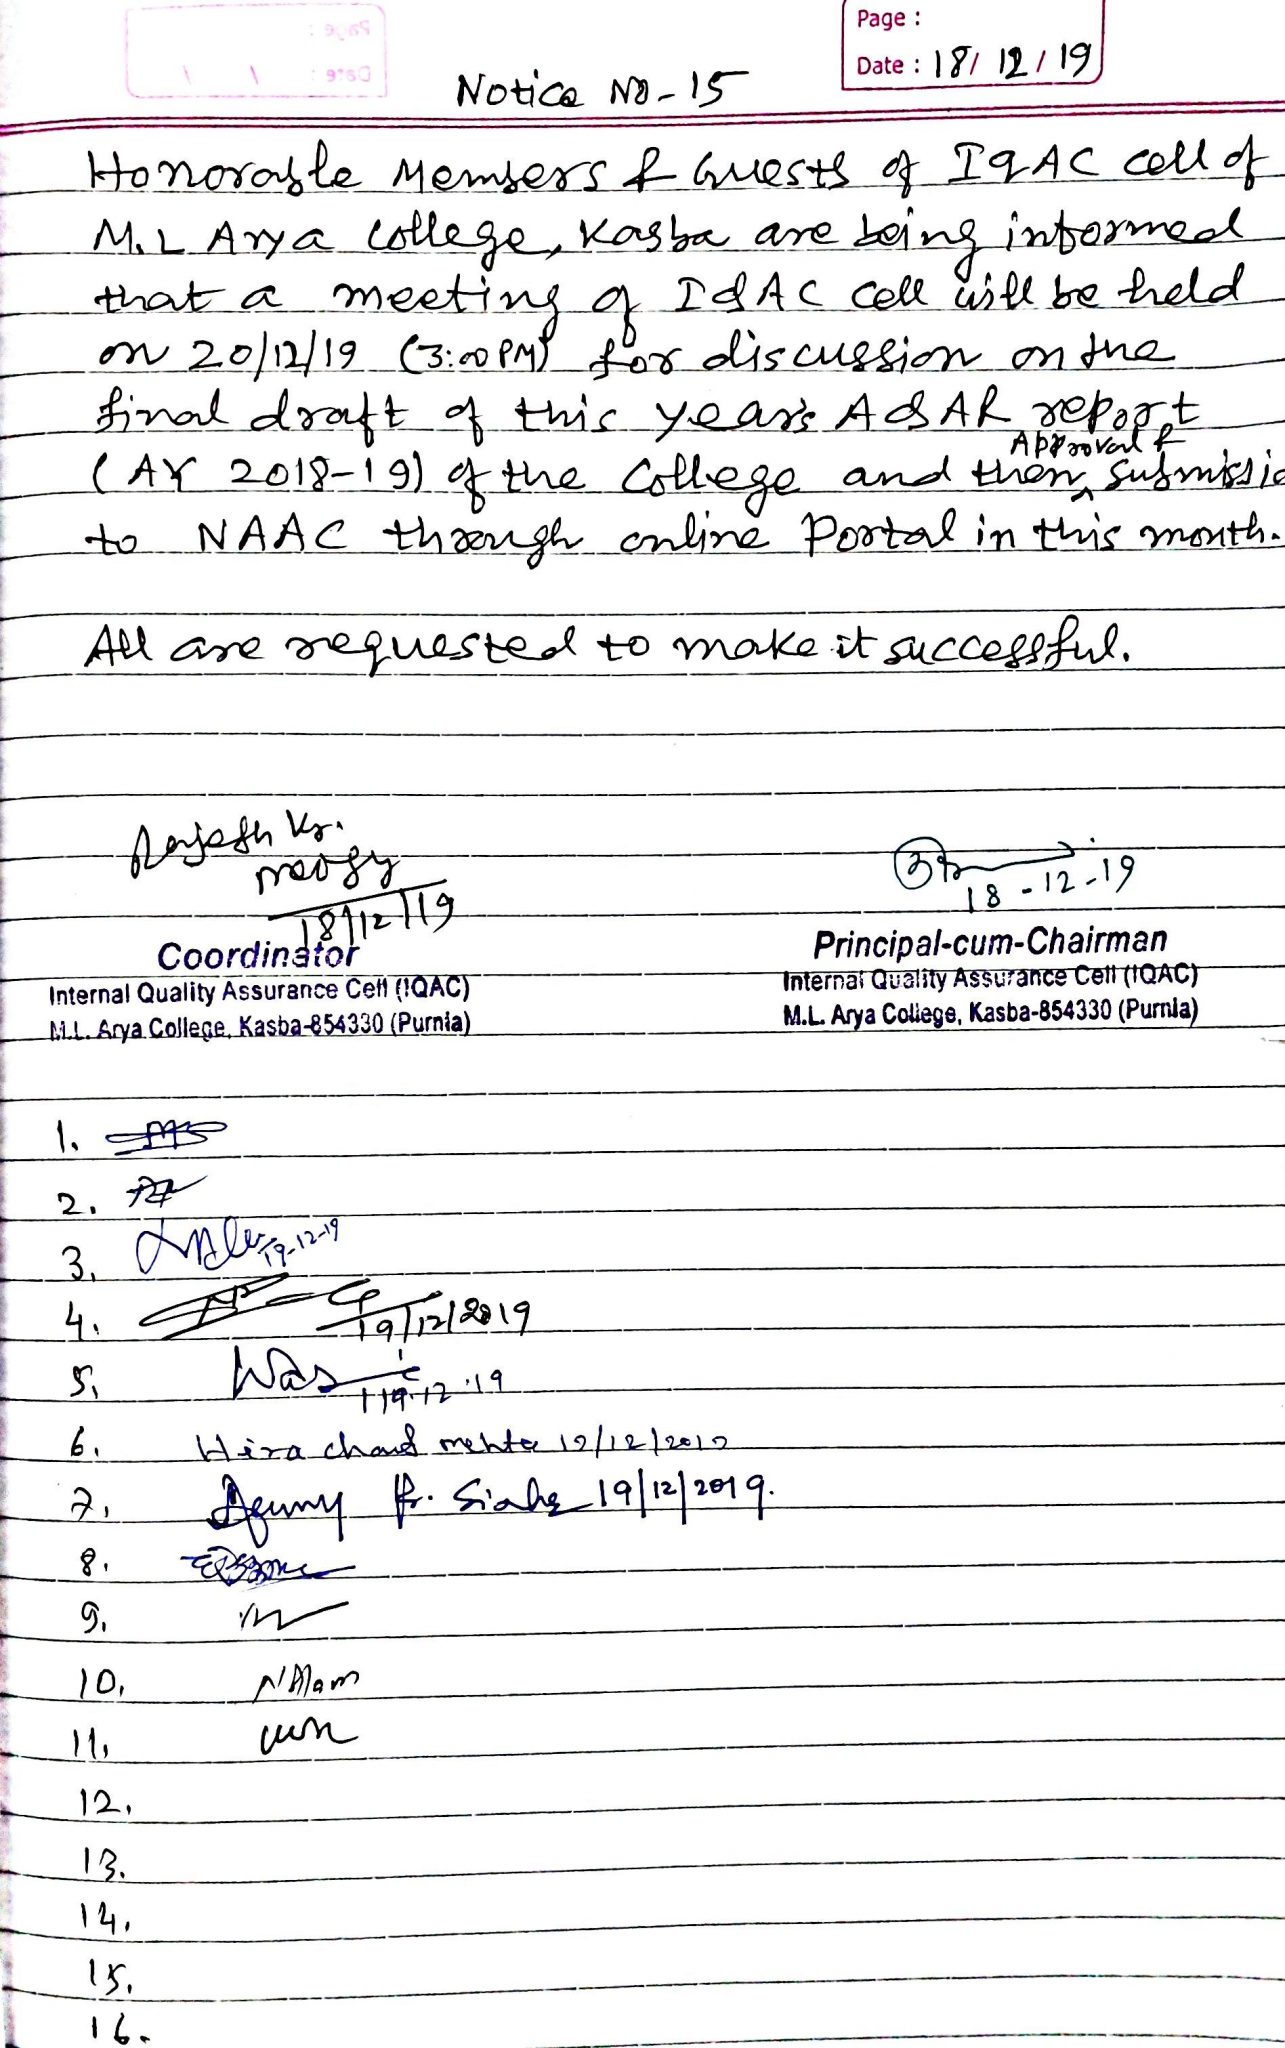 Page :
Date : 18/ 12 / 19
Notice No - 15
Honorable Members & Guests of IQAC cell of
M.L Arya College, Kasba are being informed
that a meeting of IQAC cell will be held
on 20/12/19 (3:00 PM) for discussion on the
final draft of this year's AQAR report
(AY 2018-19) of the College and then Approval & submissio
to NAAC through online Portal in this month.
All are requested to make it successful.
Rajesh Kr.
Neogy
18/12/19
18-12-19
Coordinator
Internal Quality Assurance Cell (IQAC)
M.L. Arya College, Kasba-854330 (Purnia)
Principal-cum-Chairman
Internal Quality Assurance Cell (IQAC)
M.L. Arya College, Kasba-854330 (Purnia)
1.
2.
3. 19-12-19
4. 19/12/2019
5. 19.12.19
6. Hira chand mehta
7. Kr. 19/12/2019.
8.
9.
10. N Alam
11.
12.
13.
14.
15.
16.